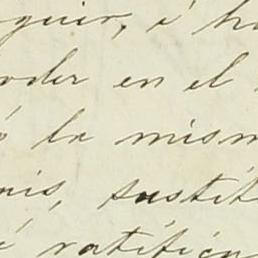 guir, é h
oder en el
ó la mism
nis, sustit
é ratifican